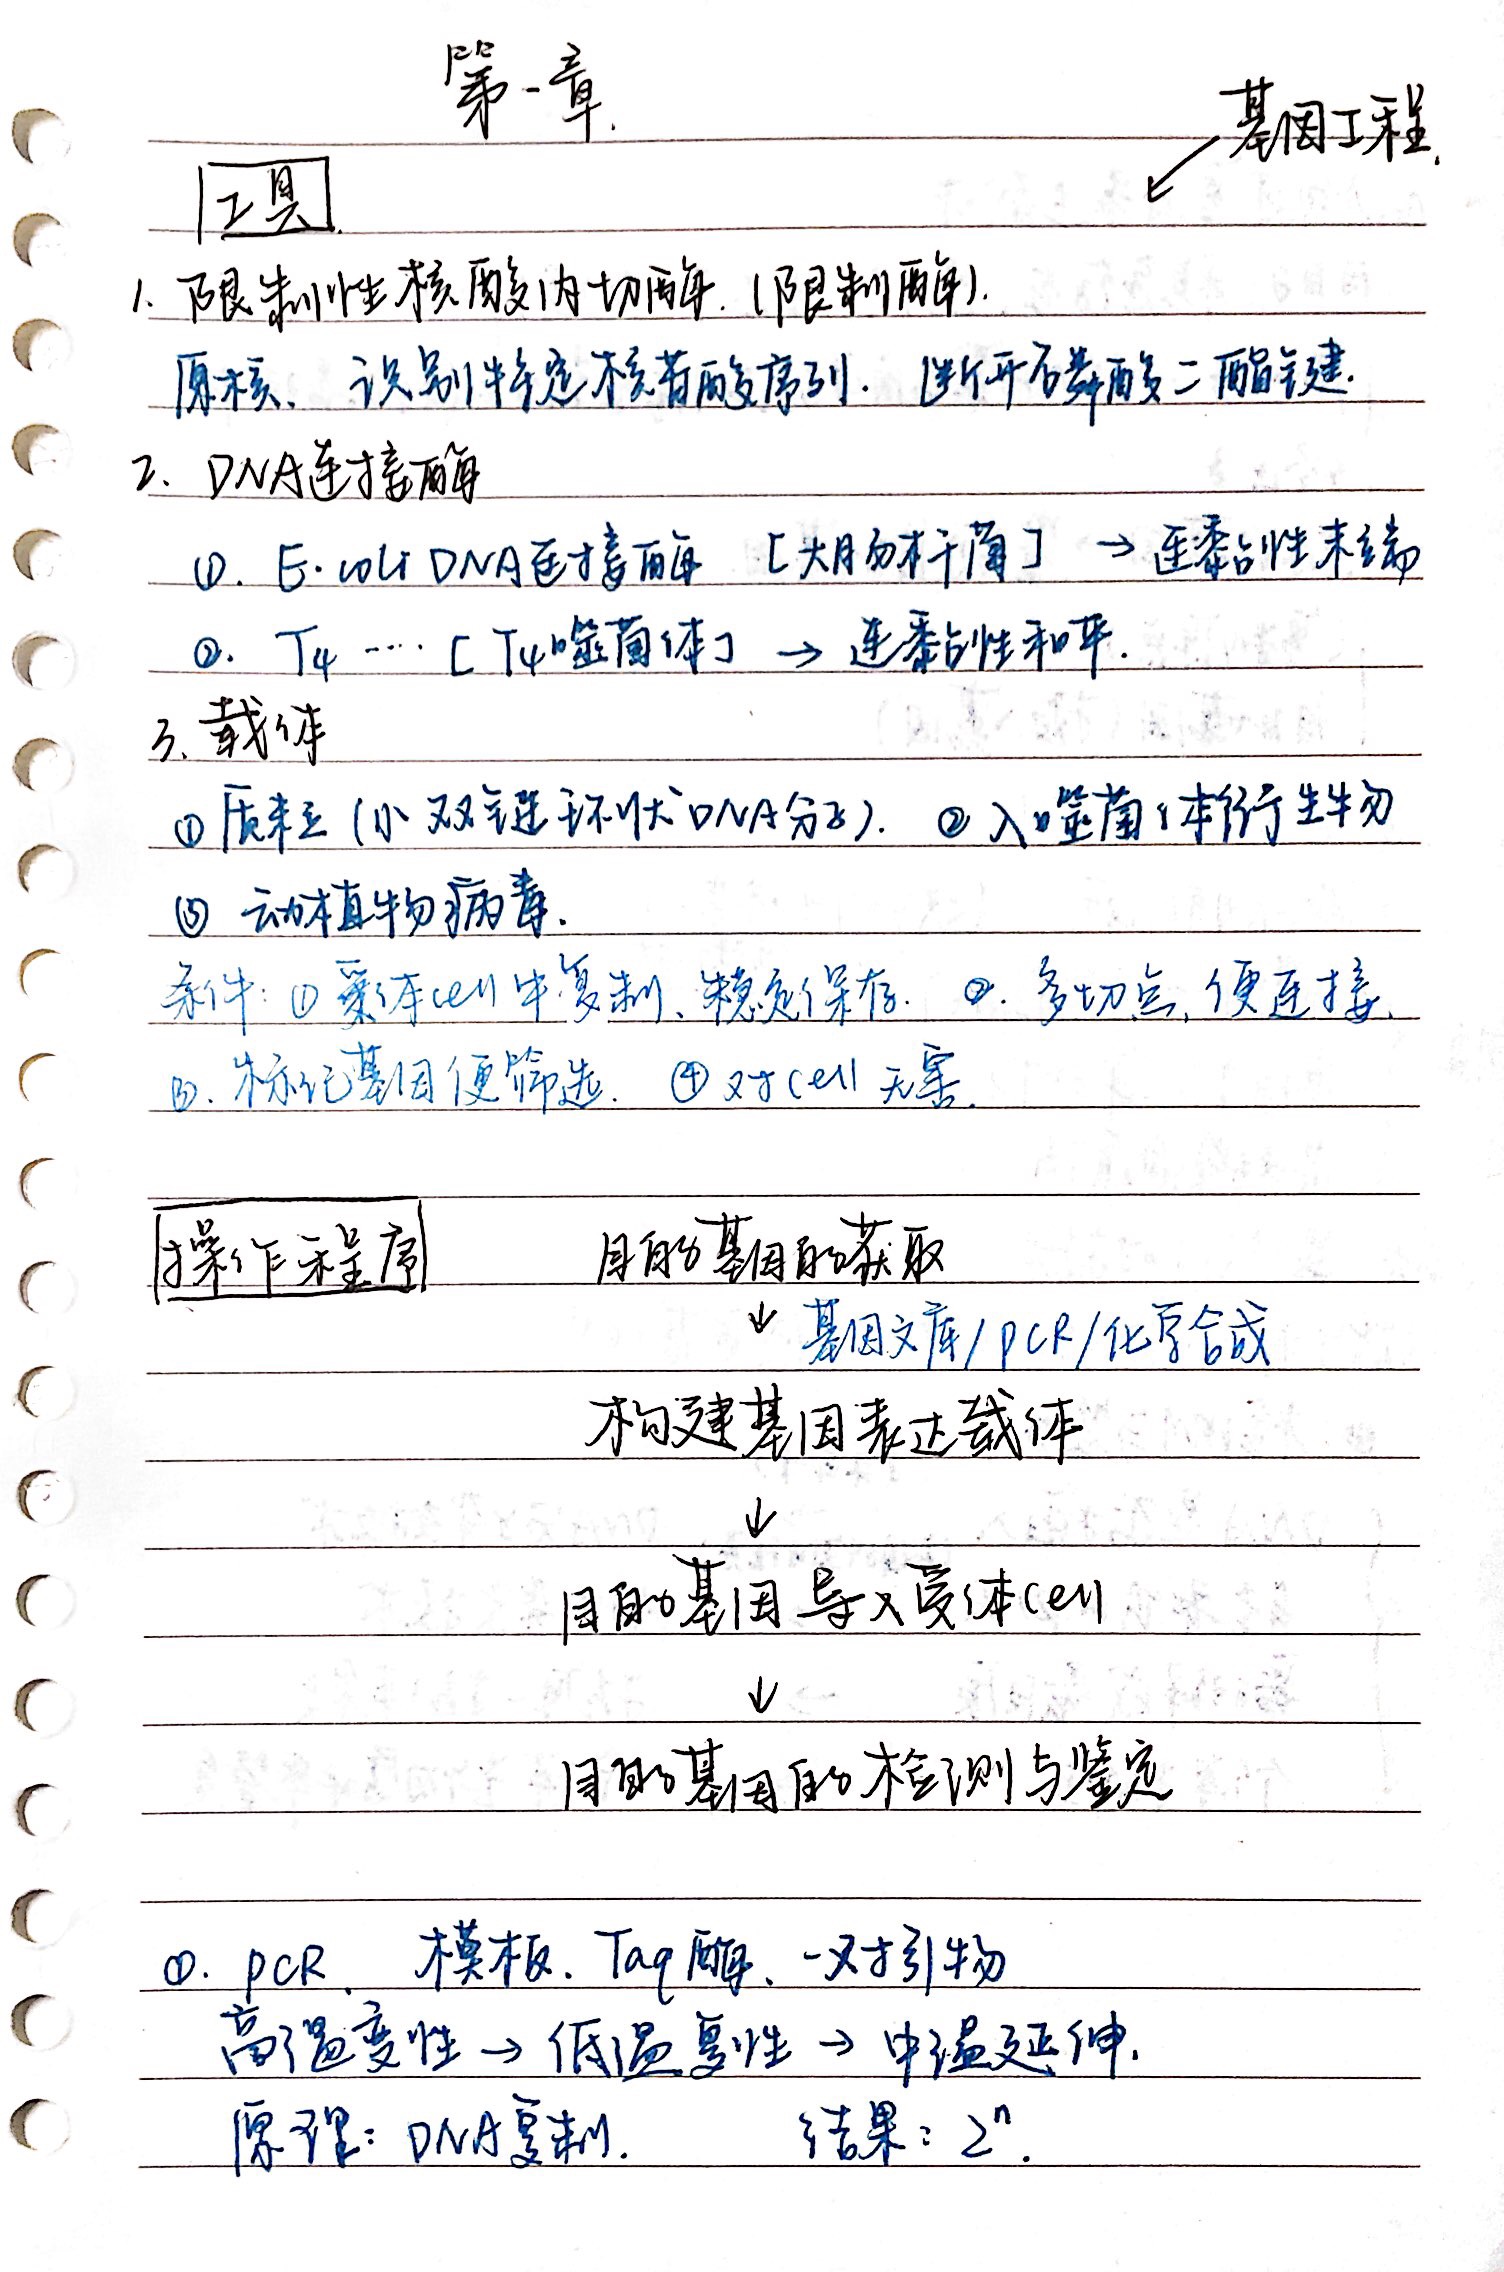 第一章.
基因工程.
工具
1. 限制性核酸内切酶.(限制酶).
原核、识别特定核苷酸序列.断开磷酸二酯键.
2. DNA连接酶
①. E.coli DNA连接酶 [大肠杆菌] → 连黏性末端
②. T4 …… [T4噬菌体] → 连黏性和平.
3. 载体
①质粒(小双链环状DNA分子). ②λ噬菌体衍生物
③ 动植物病毒.
条件:①受体cell中复制、稳定保存. ②.多切点,便连接.
③.标记基因便筛选. ④对cell无害.
操作程序 目的基因的获取
↓ 基因文库/PCR/化学合成
构建基因表达载体
↓
目的基因导入受体cell
↓
目的基因的检测与鉴定
①. PCR. 模板、Taq酶、一对引物
高温变性→低温复性→中温延伸.
原理:DNA复制. 结果:2ⁿ.